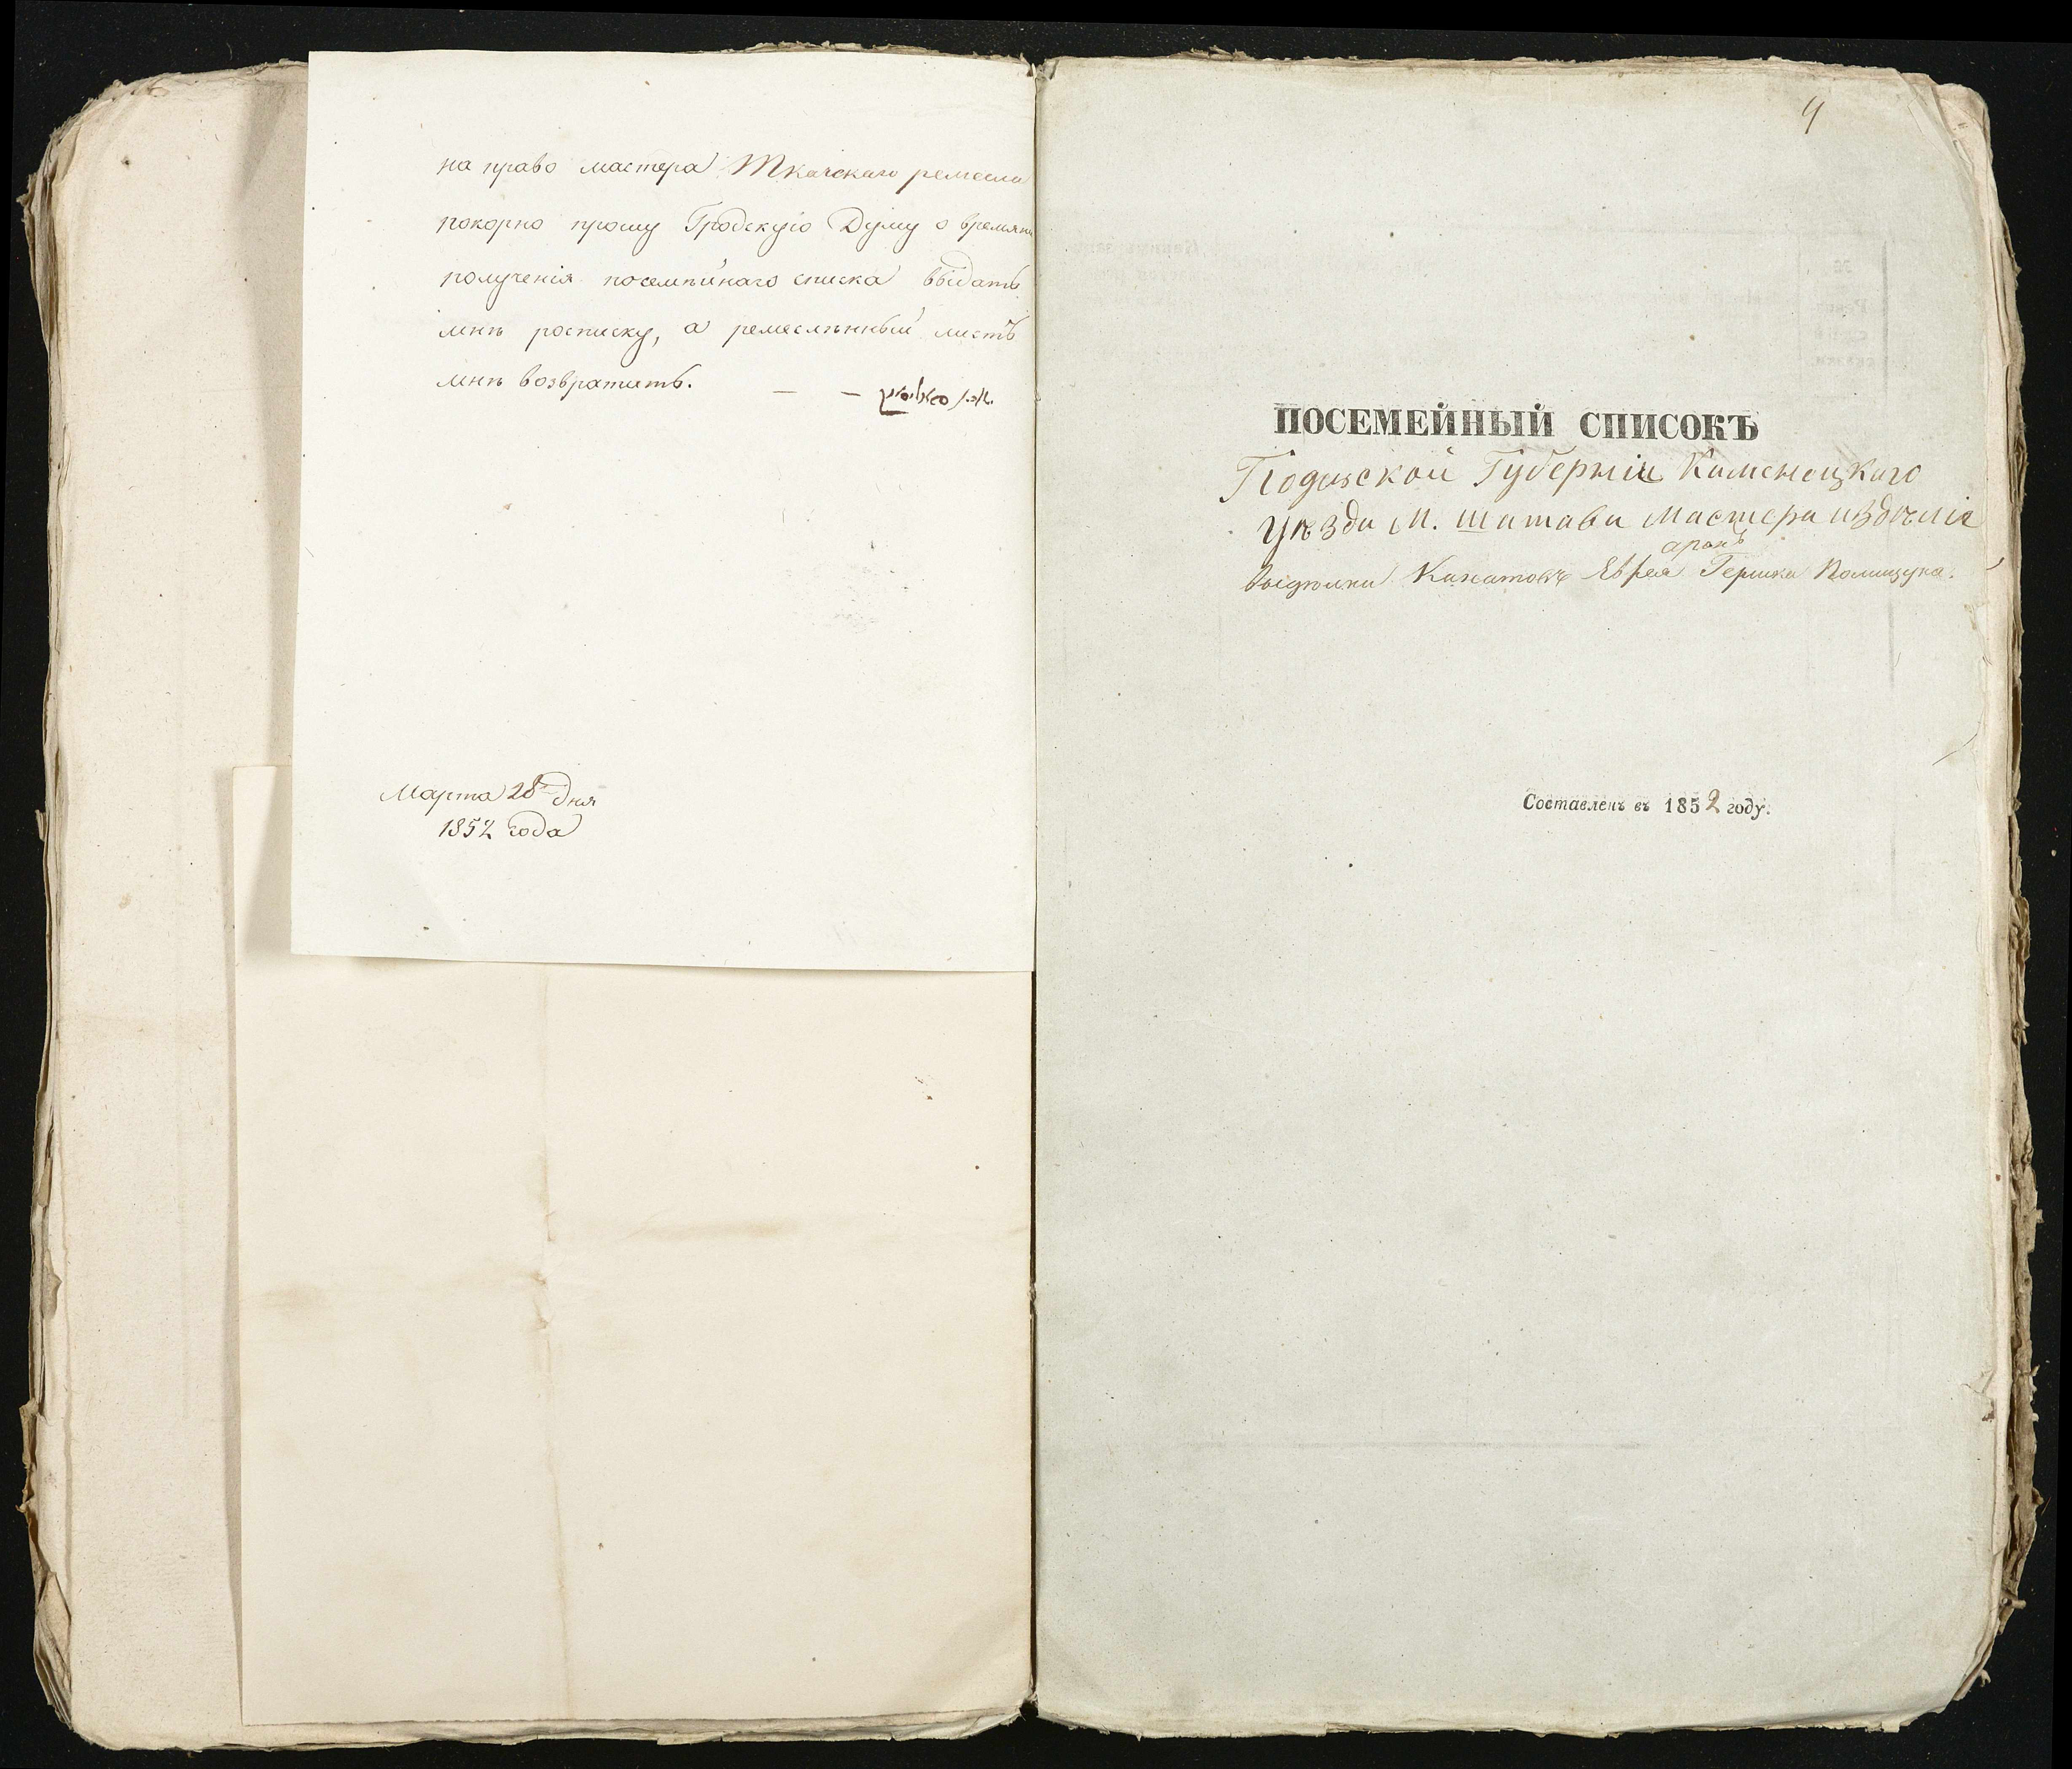 на право мастера Ткачскаго ремесла
покорно прошу Гродскую Думу о времяни
полученія посемѣйнаго списка выдать
мнѣ росписку, а ремеслѣнный листъ
мнѣ возвратить. — —
Марта 28 дня
1852 года
4
ПОСЕМЕЙНЫЙ СПИСОКЪ
Подольской Губерніи Каменецкаго
Уѣзда М. Шатави Мастера издѣлія
аронъ
выдѣлки Канатовъ Еврея Гершка Полищука.
Составленъ въ 1852 году.